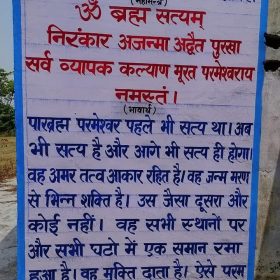 (महामन्त्र)
ॐ ब्रह्म सत्यम्
निरंकार अजन्मा अद्वैत पुरखा
सर्व व्यापक कल्याण मूरत परमेश्वराय
नमस्तं।
(भावार्थ)
पारब्रह्म परमेश्वर पहले भी सत्य था।अब
भी सत्य है और आगे भी सत्य ही होगा।
वह अमर तत्व आकार रहित है।वह जन्म मरण
से भिन्न शक्ति है। उस जैसा दूसरा और
कोई नहीं। वह सभी स्थानों पर
और सभी घटो में एक समान रमा
हुआ है।वह मुक्ति दाता है। ऐसे परम